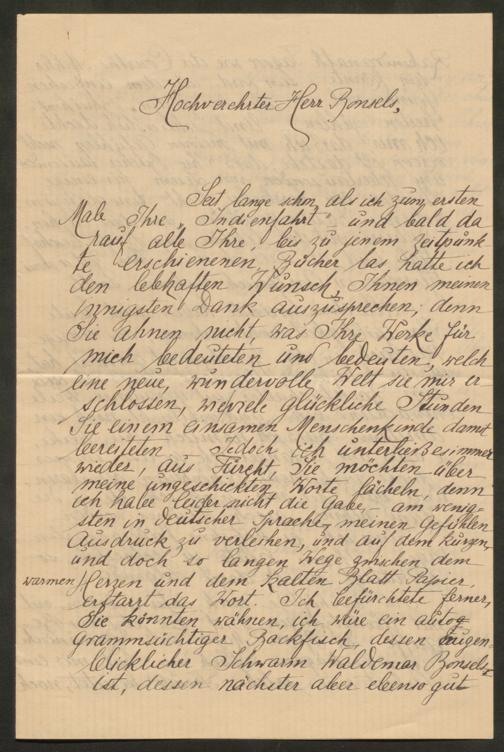 Hochverehrter Herr Bonsels,
Seit lange schon, als ich zum ersten
Male Ihre „Indienfahrt" und bald da
rauf alle Ihre, bis zu jenem Zeitpunk
te erschienenen, Bücher las, hatte ich
den lebhaften Wunsch, Ihnen meinen
innigsten Dank auszusprechen, denn
Sie ahnen nicht, was Ihre Werke für
mich bedeuteten und bedeuten, welch
eine neue, wundervolle Welt sie mir er
schlossen, wieviele glückliche Stunden
Sie einem einsamen Menschenkinde damit
bereiteten. Jedoch ich unterließ es immer
wieder, aus Furcht, Sie möchten über
meine ungeschickten Worte lächeln, denn
ich habe leider nicht die Gabe, – am wenig-
sten in deutscher Sprache, meinen Gefühlen
Ausdruck zu verleihen, und auf dem kurzen,
und doch so langen Wege zwischen dem
warmen Herzen und dem kalten Blatt Papier,
erstarrt das Wort. Ich befürchtete ferner,
Sie könnten wähnen, ich wäre ein autog
grammsüchtiger Backfisch, dessen augen-
blicklicher Schwarm Waldemar Bonsels
ist, dessen nächster aber ebenso gut